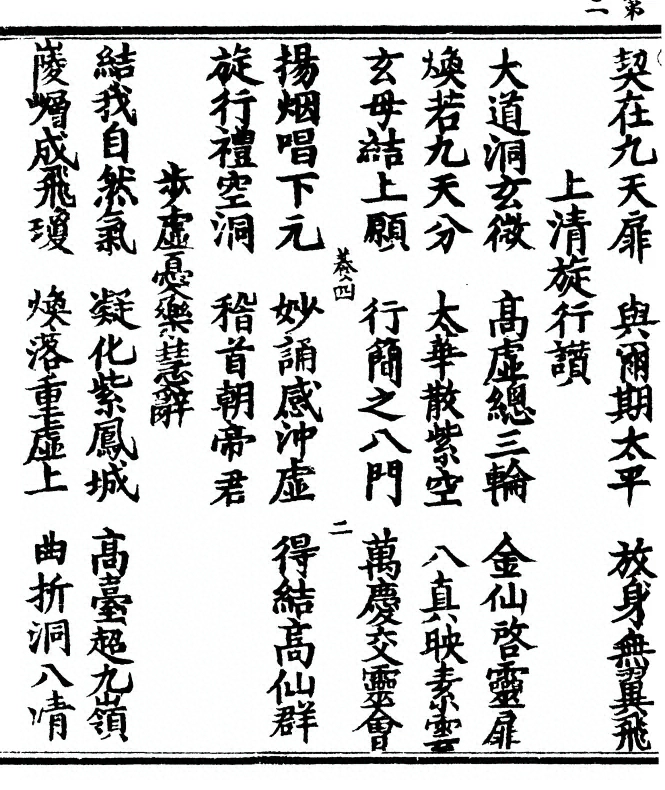 第
二
契在九天扉 與爾期太平 放身無翼飛
上清旋行讚
大道洞玄微 高虛總三輪 金仙啓靈扉
煥若九天分 太華散紫空 八真映素雲
玄母結上願 行簡之八門 萬慶交靈會
卷四 二
揚烟唱下元 妙誦感沖虛 得結高仙群
旋行禮空洞 稽首朝帝君
步虛憂樂慧辭
結我自然氣 凝化紫鳳城 高臺超九嶺
崚嶒成飛瓊 煥落重虛上 曲折洞八清